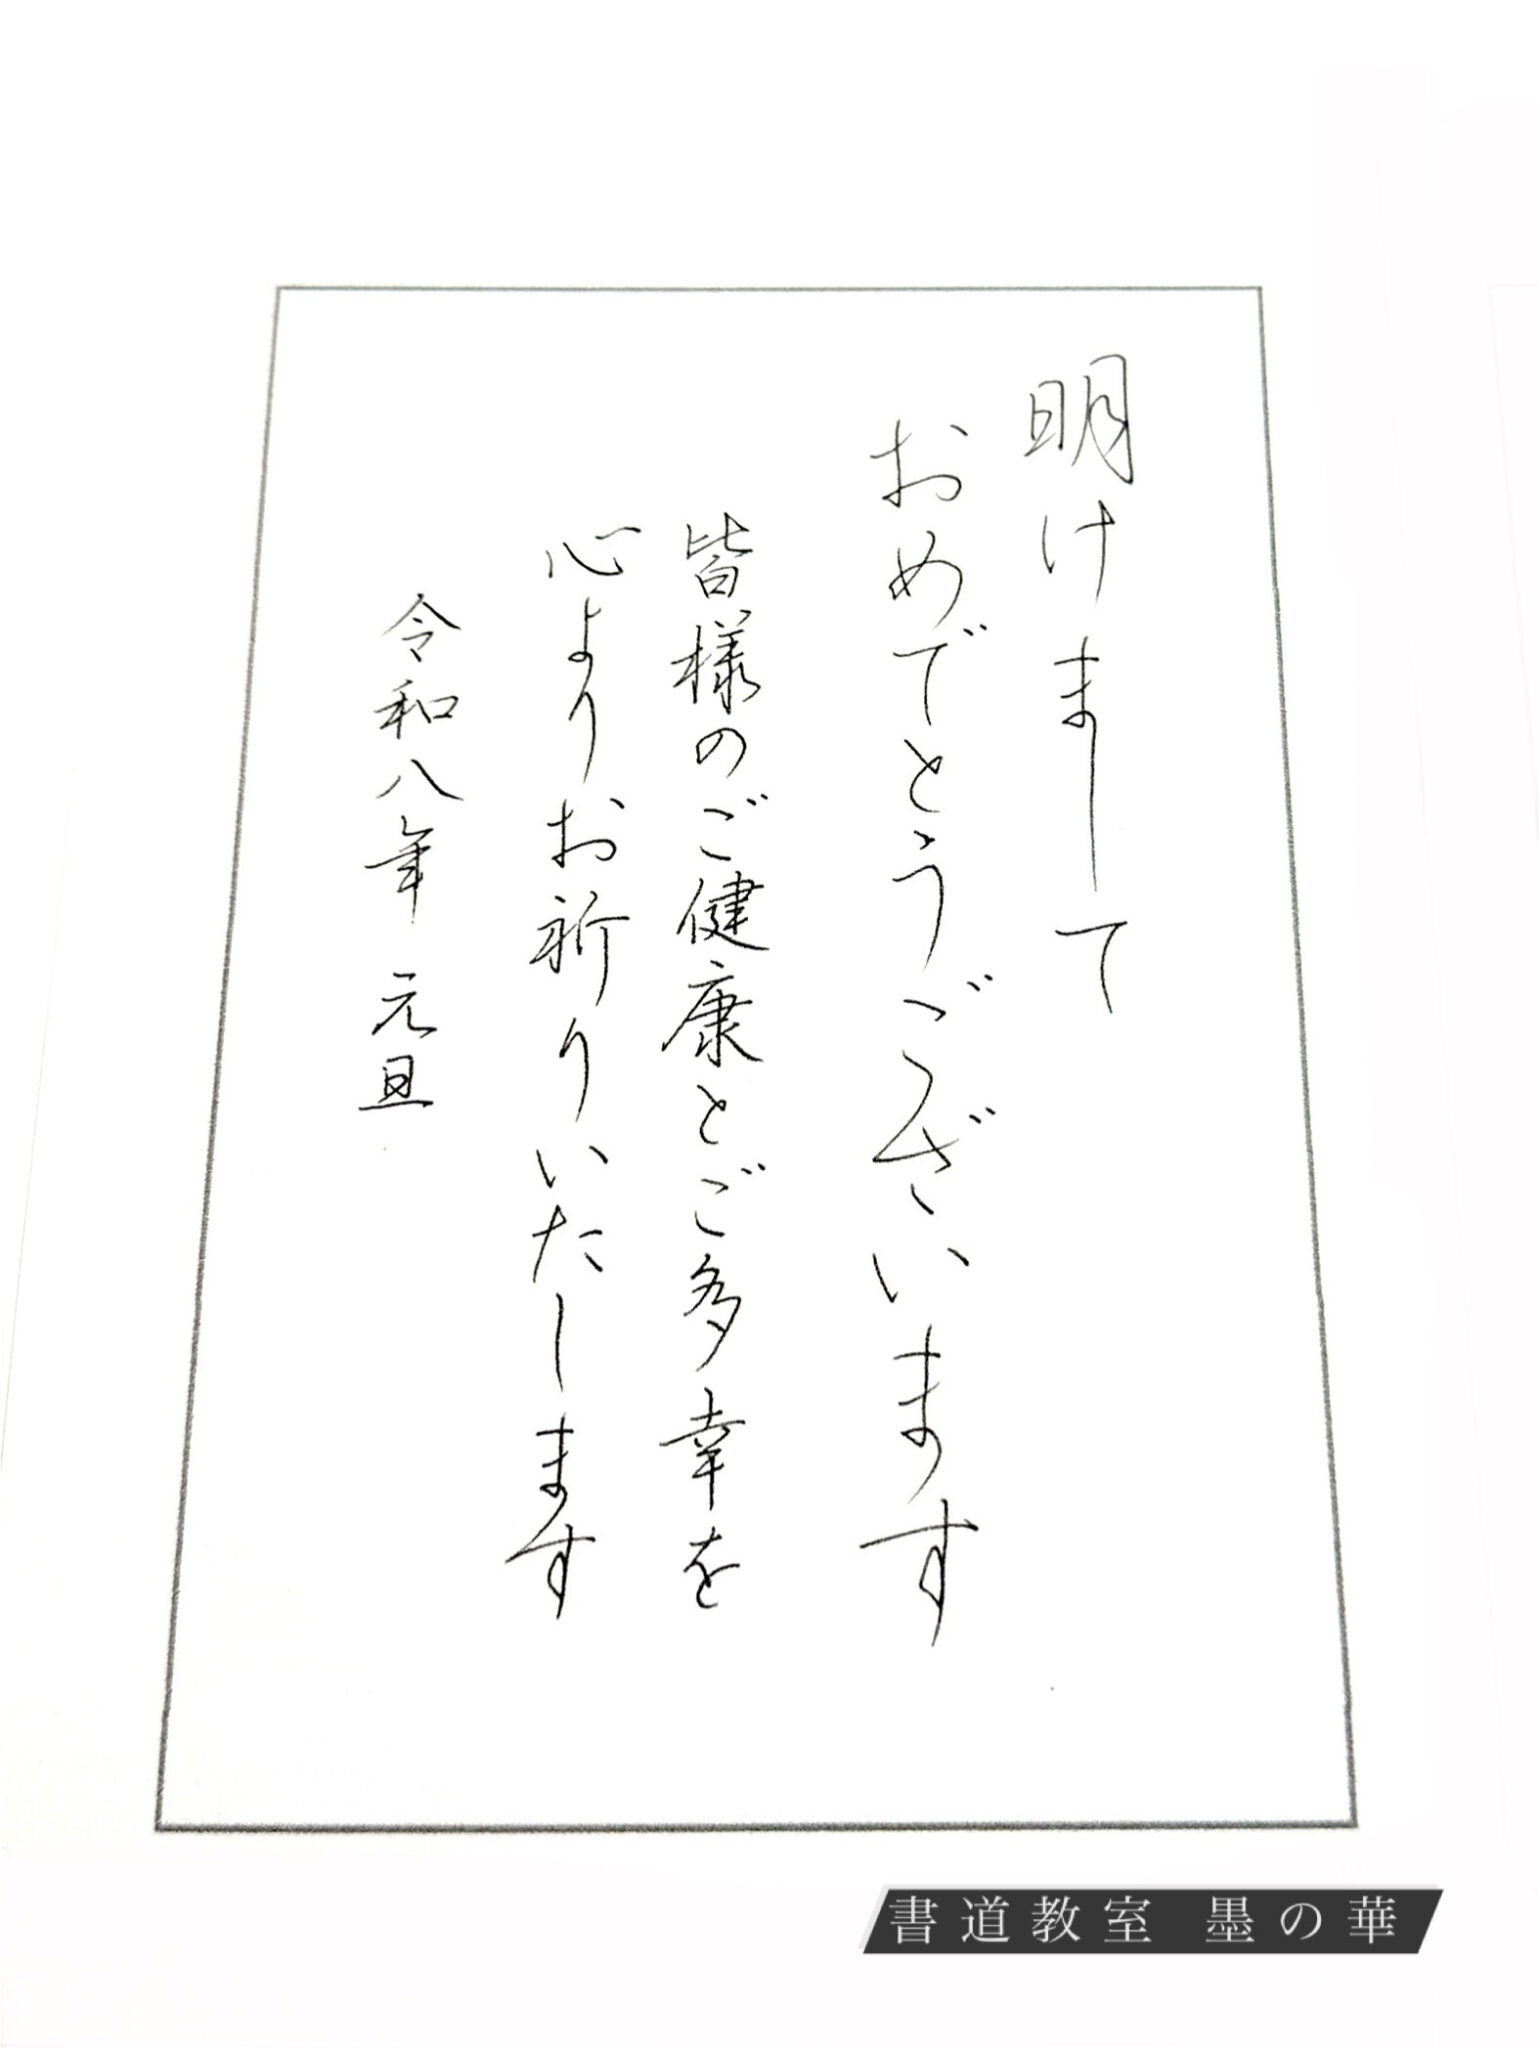 明けまして
おめでとうございます
皆様のご健康とご多幸を
心よりお祈りいたします
令和八年 元旦
書道教室 墨の華